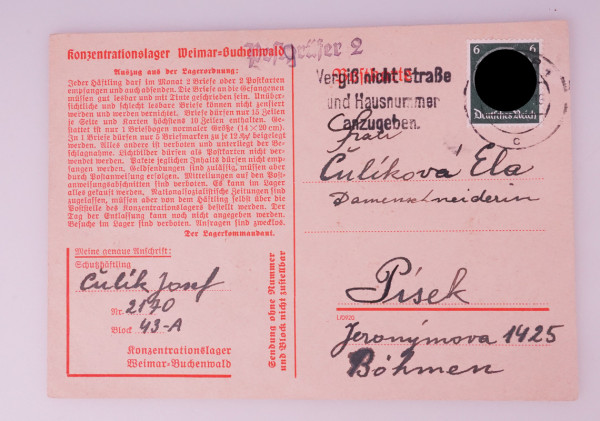 Konzentrationslager Weimar-Buchenwald
Postprüfer 2
Auszug aus der Lagerordnung:
Jeder Häftling darf im Monat 2 Briefe oder 2 Postkarten
empfangen und auch absenden. Die Briefe an die Gefangenen
müssen gut lesbar und mit Tinte geschrieben sein. Unüber-
sichtliche und schlecht lesbare Briefe können nicht zensiert
werden und werden vernichtet. Briefe dürfen nur 15 Zeilen
je Seite und Karten höchstens 10 Zeilen enthalten. Ge-
stattet ist nur 1 Briefbogen normaler Größe (14×20 cm).
In 1 Briefe dürfen nur 5 Briefmarken zu je 12 Rpf beigelegt
werden. Alles andere ist verboten und unterliegt der Be-
schlagnahme. Lichtbilder dürfen als Postkarten nicht ver-
wendet werden. Pakete jeglichen Inhalts dürfen nicht emp-
fangen werden. Geldsendungen sind zulässig, müssen aber
durch Postanweisung erfolgen. Mitteilungen auf den Post-
anweisungsabschnitten sind verboten. Es kann im Lager
alles gekauft werden. Nationalsozialistische Zeitungen sind
zugelassen, müssen aber von dem Häftling selbst über die
Postzelle des Konzentrationslagers bestellt werden. Der
Tag der Entlassung kann noch nicht angegeben werden.
Besuche im Lager sind verboten. Anfragen sind zwecklos.
Der Lagerkommandant.
Meine genaue Anschrift:
Schutzhäftling
Čulík Josef
Nr. 2170
Block 43-A
Konzentrationslager
Weimar-Buchenwald
Sendung ohne Nummer
und Block nicht zustellbar
Postkarte
Vergiß nicht Straße
und Hausnummer
anzugeben.
6 6
Deutsches Reich
c
Frau
Čulíkova Ela
Damenschneiderin
Písek
I/0120
Jeronýmova 1425
Böhmen